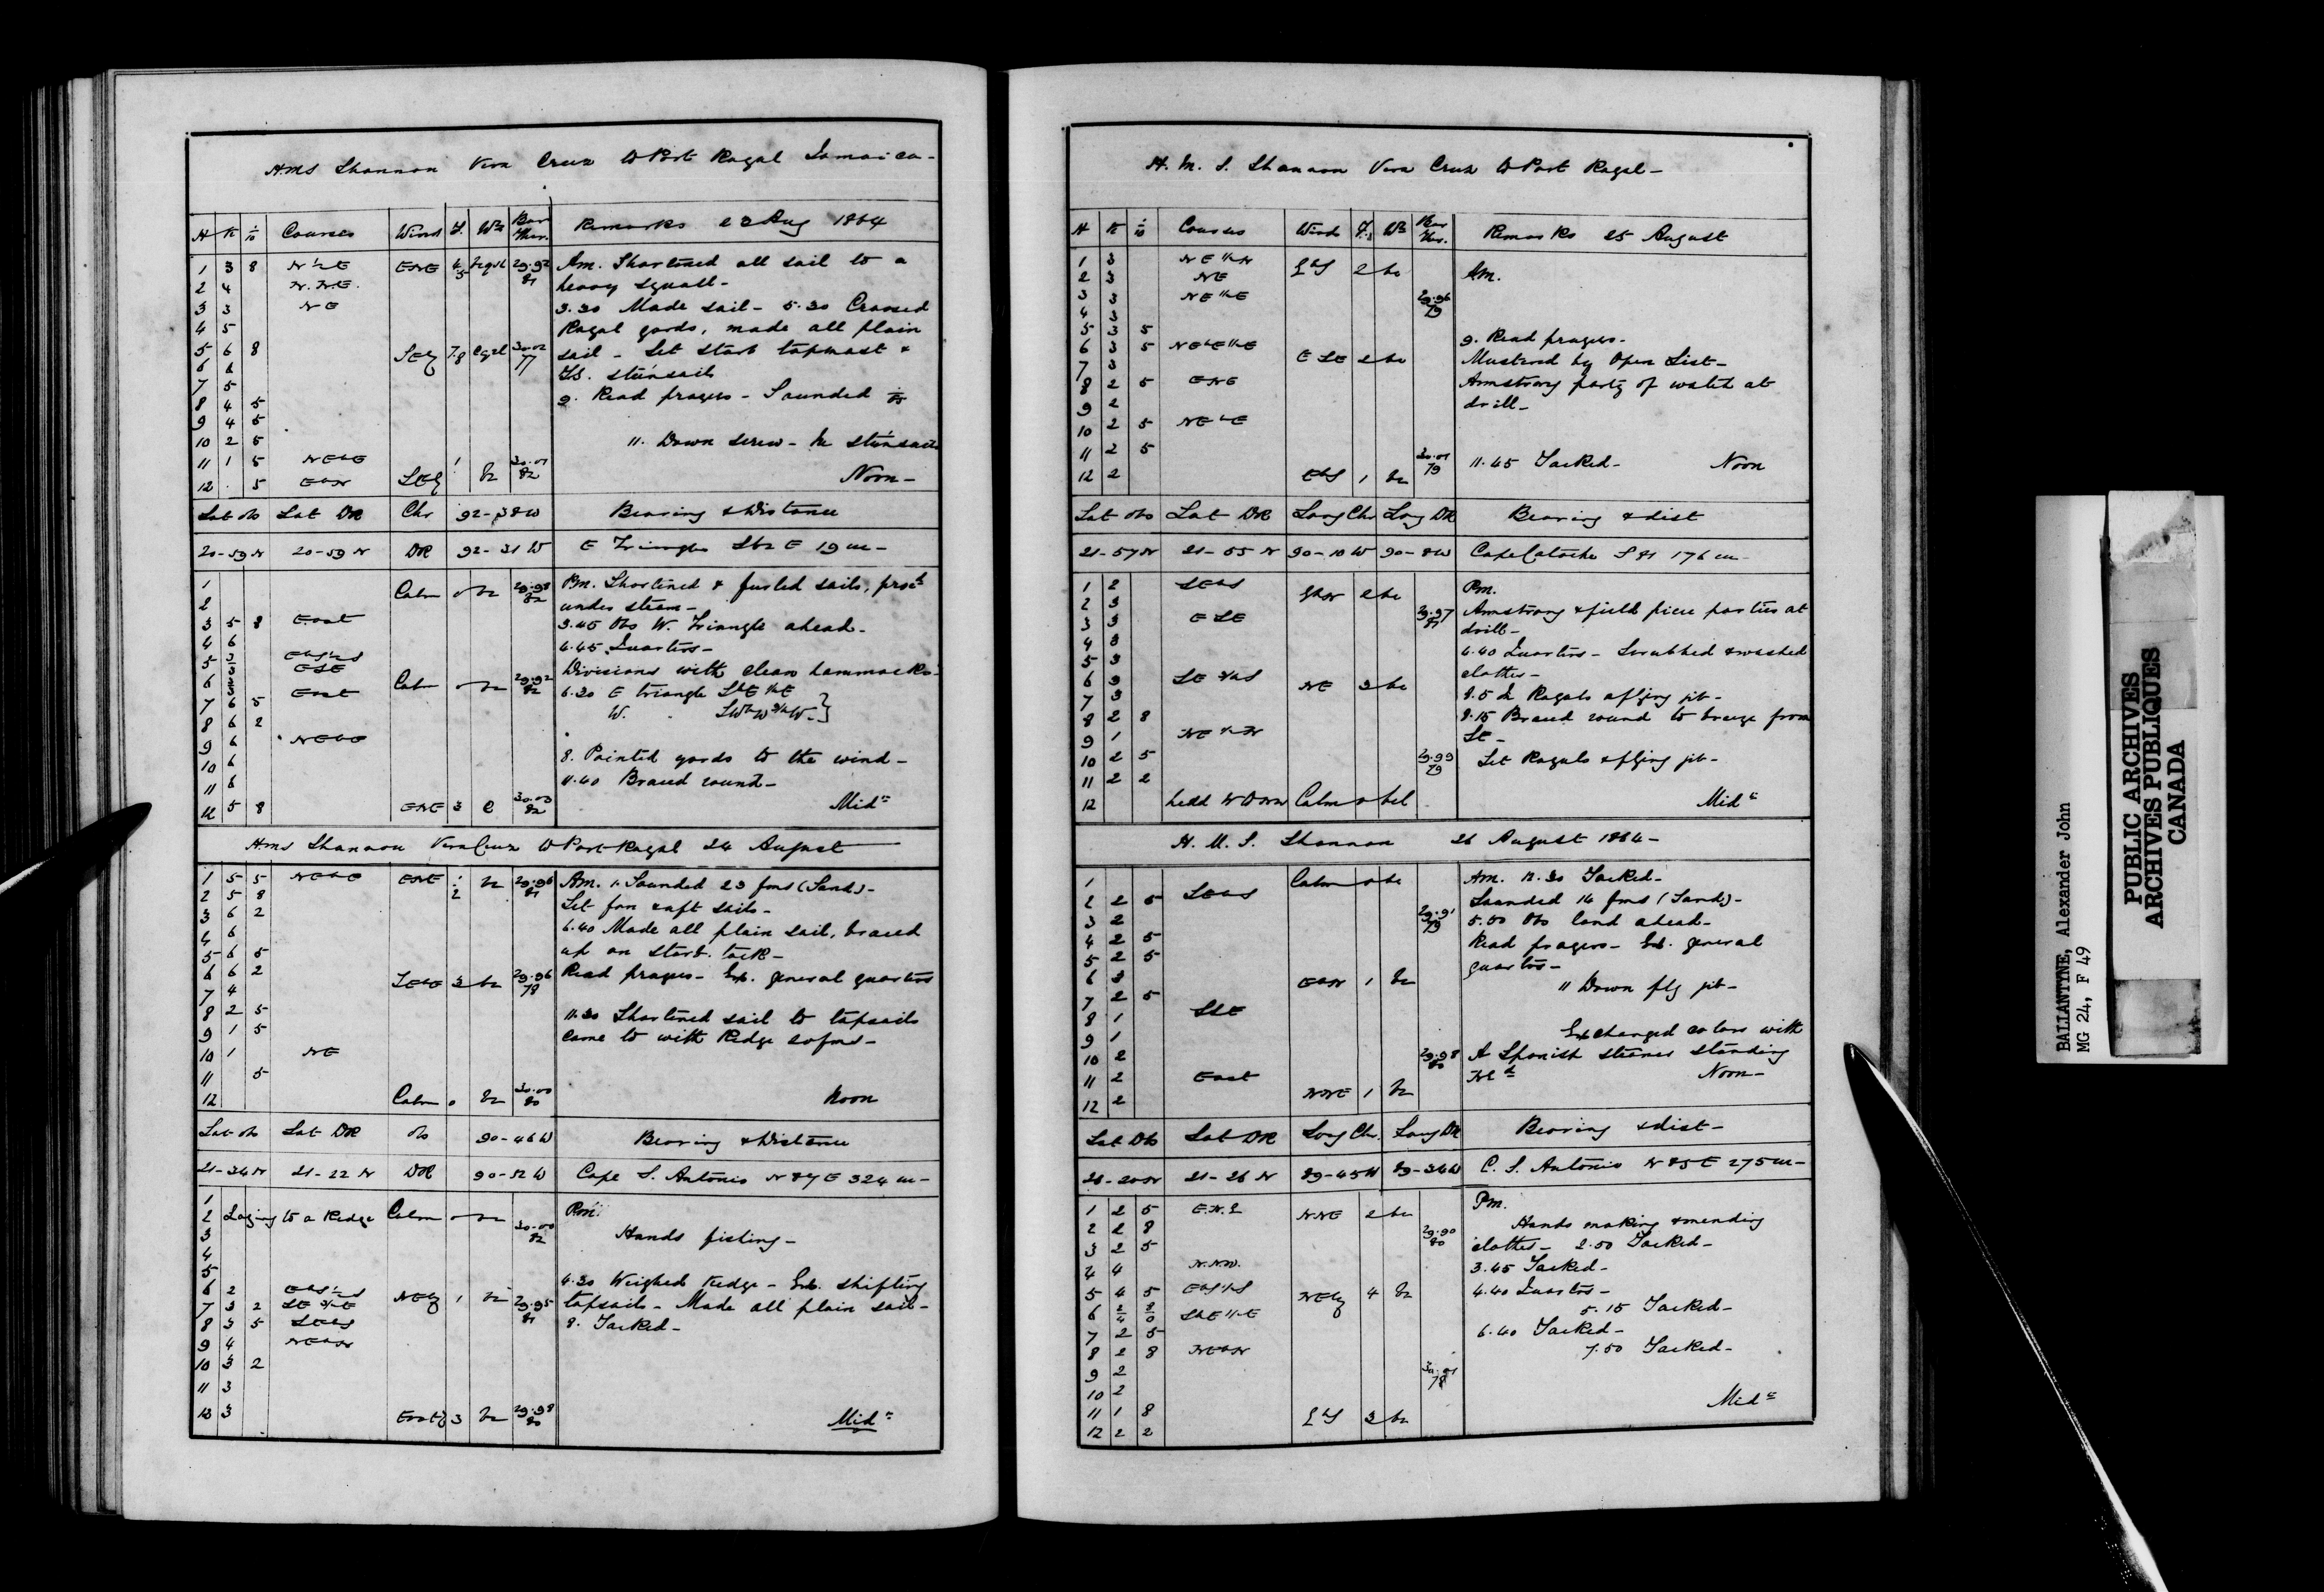 HMS Shannon Vera Cruz to Port Royal Jamaica -
H K 1/10 Courses Wind F. Wr Bar Ther. Remarks 23 Aug 1864
1 3 8 N½E ENE 4/5 29.92 81 Am. Shortened all sail to a
2 4 N.NE. heavy squall -
3 3 NE 3.30 Made sail - 5.30 Crossed
4 5 Royal yards, made all plain
5 6 8 SEly 7.8 30.02 77 sail - Set Starb topmast &
6 6 stunsails
7 5
8 4 5 9. Read prayers - Sounded
9 4 5
10 2 5 11. Down screw - In stunsails
11 1 5 NEbE 1 30.01
12 . 5 EbN SEly bc 82 Noon -
Lat obs Lat DR Chr 92-38W Bearing & Distance
20-59N 20-59N DR 92-31W E Triangles S½E 19m -
1 Calm o bc 29.98 82 Pm. Shortened & furled sails, procd
2 under steam -
3 5 8 East 3.45 Obs W. Triangle ahead -
4 6 4.45 Quarters -
5 EbS½S ESE Divisions with clean hammocks -
6 Calm o bc 29.92 82 6.20 E triangle SbE½E
7 6 5 East W. " SWbW¾W - }
8 6 2
9 6 NEbE
10 6 8. Pointed yards to the wind -
11 6 11.40 Braced round -
12 5 8 ENE 3 c 30.03 82 Midt
HMS Shannon Vera Cruz to Port Royal 24 August
1 5 5 NEbE ENE 1/2 bc 29.96 81 Am. 1. Sounded 23 fms (Sand) -
2 5 8 Set fore & aft sails -
3 6 2 6.40 Made all plain sail, braced
4 6 up on starb. tack -
5 6 5
6 6 2 SEbE 3 bc 29.96 78 Read prayers - Ex. general quarters
7 4
8 2 5 11.30 Shortened sail to topsails
9 1 5 came to with Kedge 20 fms -
10 1 NE
11 5
12 Calm o bc 30.00 80 Noon
Lat obs Lat DR obs 90-46W Bearing & Distance
21-34N 21-22N DR 90-52W Cape S. Antonio N87E 324m -
1 Pm.
2 Laying to a Kedge Calm o bc 30.00 82
3 Hands fishing -
4
5
6 2 EbS½S 4.30 Weighed Kedge - Ex. shifting
7 3 2 SE¾E NEly 1 bc 29.95 81 topsails - Made all plain sail -
8 3 5 SEbS 8. Tacked -
9 4 NEbN
10 3 2
11 3
12 3 Eastly 3 bc 29.98 80 Midt
H. M. S. Shannon Vera Cruz to Port Royal -
H K 1/10 Courses Winds F. Wr Bar Ther. Remarks 25 August
1 3 NE½N EbS 2 bc Am.
2 3 NE
3 3 NE½E 29.96 79
4 3
5 3 5 9. Read prayers -
6 3 5 NEbE½E ESE 2 bc Mustered by Open List -
7 3
8 2 5 ENE Armstrong party of watch at
9 2 drill -
10 2 5 NEbE
11 2 5 30.01
12 2 EbS 1 bc 79 11.45 Tacked - Noon
Lat obs Lat DR Long Chr Long DR Bearing & dist
21-57N 21-55N 90-10W 90-8W Cape Catoche S81 176m -
1 2 SEbS EbN 2 bc Pm.
2 3 29.97 81 Armstrong & field piece parties at
3 3 ESE drill -
4 3 4.40 Quarters - Scrubbed & washed
5 3 clothes -
6 3 SE¾S NE 3 bc 8.5 In Royals & flying jib -
7 3
8 2 8 8.15 Braced round to breeze from
9 1 NE½N SE -
10 2 5 29.99 79 Set Royals & flying jib -
11 2 2
12 Calm o Midt
H. M. S. Shannon 26 August 1864 -
1 Calm o bc Am. 12.30 Tacked -
2 2 5 SEbS Sounded 14 fms (Sand) -
3 2 29.91 79 5.50 Obs land ahead -
4 2 5 Read prayers - Ex. general
5 2 5 quarters -
6 3 EbN 1 bc 11 Down flg jib -
7 2 5
8 1 SSE
9 1 Exchanged colors with
10 2 29.98 80 A Spanish steamer standing
11 2 East Nd Noon -
12 2 NNE 1 bc
Lat Obs Lat DR Long Chr. Long DR Bearing & dist -
21-20N 21-26N 89-45W 89-34W C. S. Antonio N85E 275m -
1 2 5 E.N.E NNE 2 bc Pm.
2 2 8 29.90 80 Hands making & mending
3 2 5 clothes - 2.50 Tacked -
4 4 N.NW. 3.45 Tacked -
5 4 5 EbS½S NEly 4 bc 4.40 Quarters -
6 2/4 8/0 SbE½E 5.15 Tacked -
7 2 5 6.40 Tacked -
8 2 8 NEbN 7.50 Tacked -
9 2 30.01
10 2 78
11 1 8 EbS 3 bc Midt
12 2 2
BALLANTINE, Alexander John
MG 24, F 49
PUBLIC ARCHIVES
ARCHIVES PUBLIQUES
CANADA